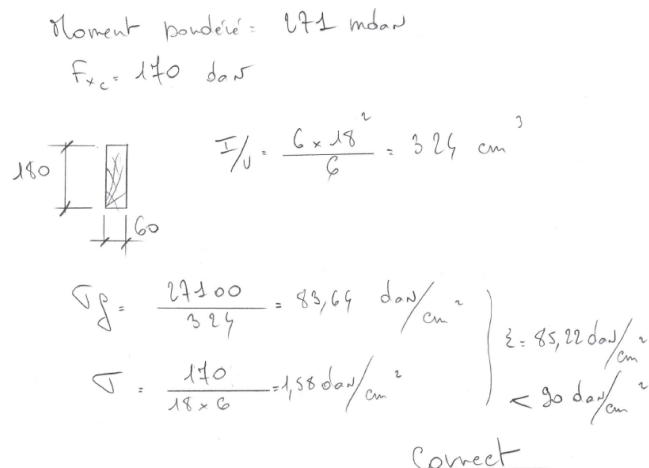 Moment pondéré = 271 mdaN
Fxc = 170 daN
I/v = 6 x 18² / 6 = 324 cm³
180
60
σf = 27100 / 324 = 83,64 daN/cm²
σ = 170 / 18 x 6 = 1,58 daN/cm²
Σ = 85,22 daN/cm²
< 90 daN/cm²
Correct